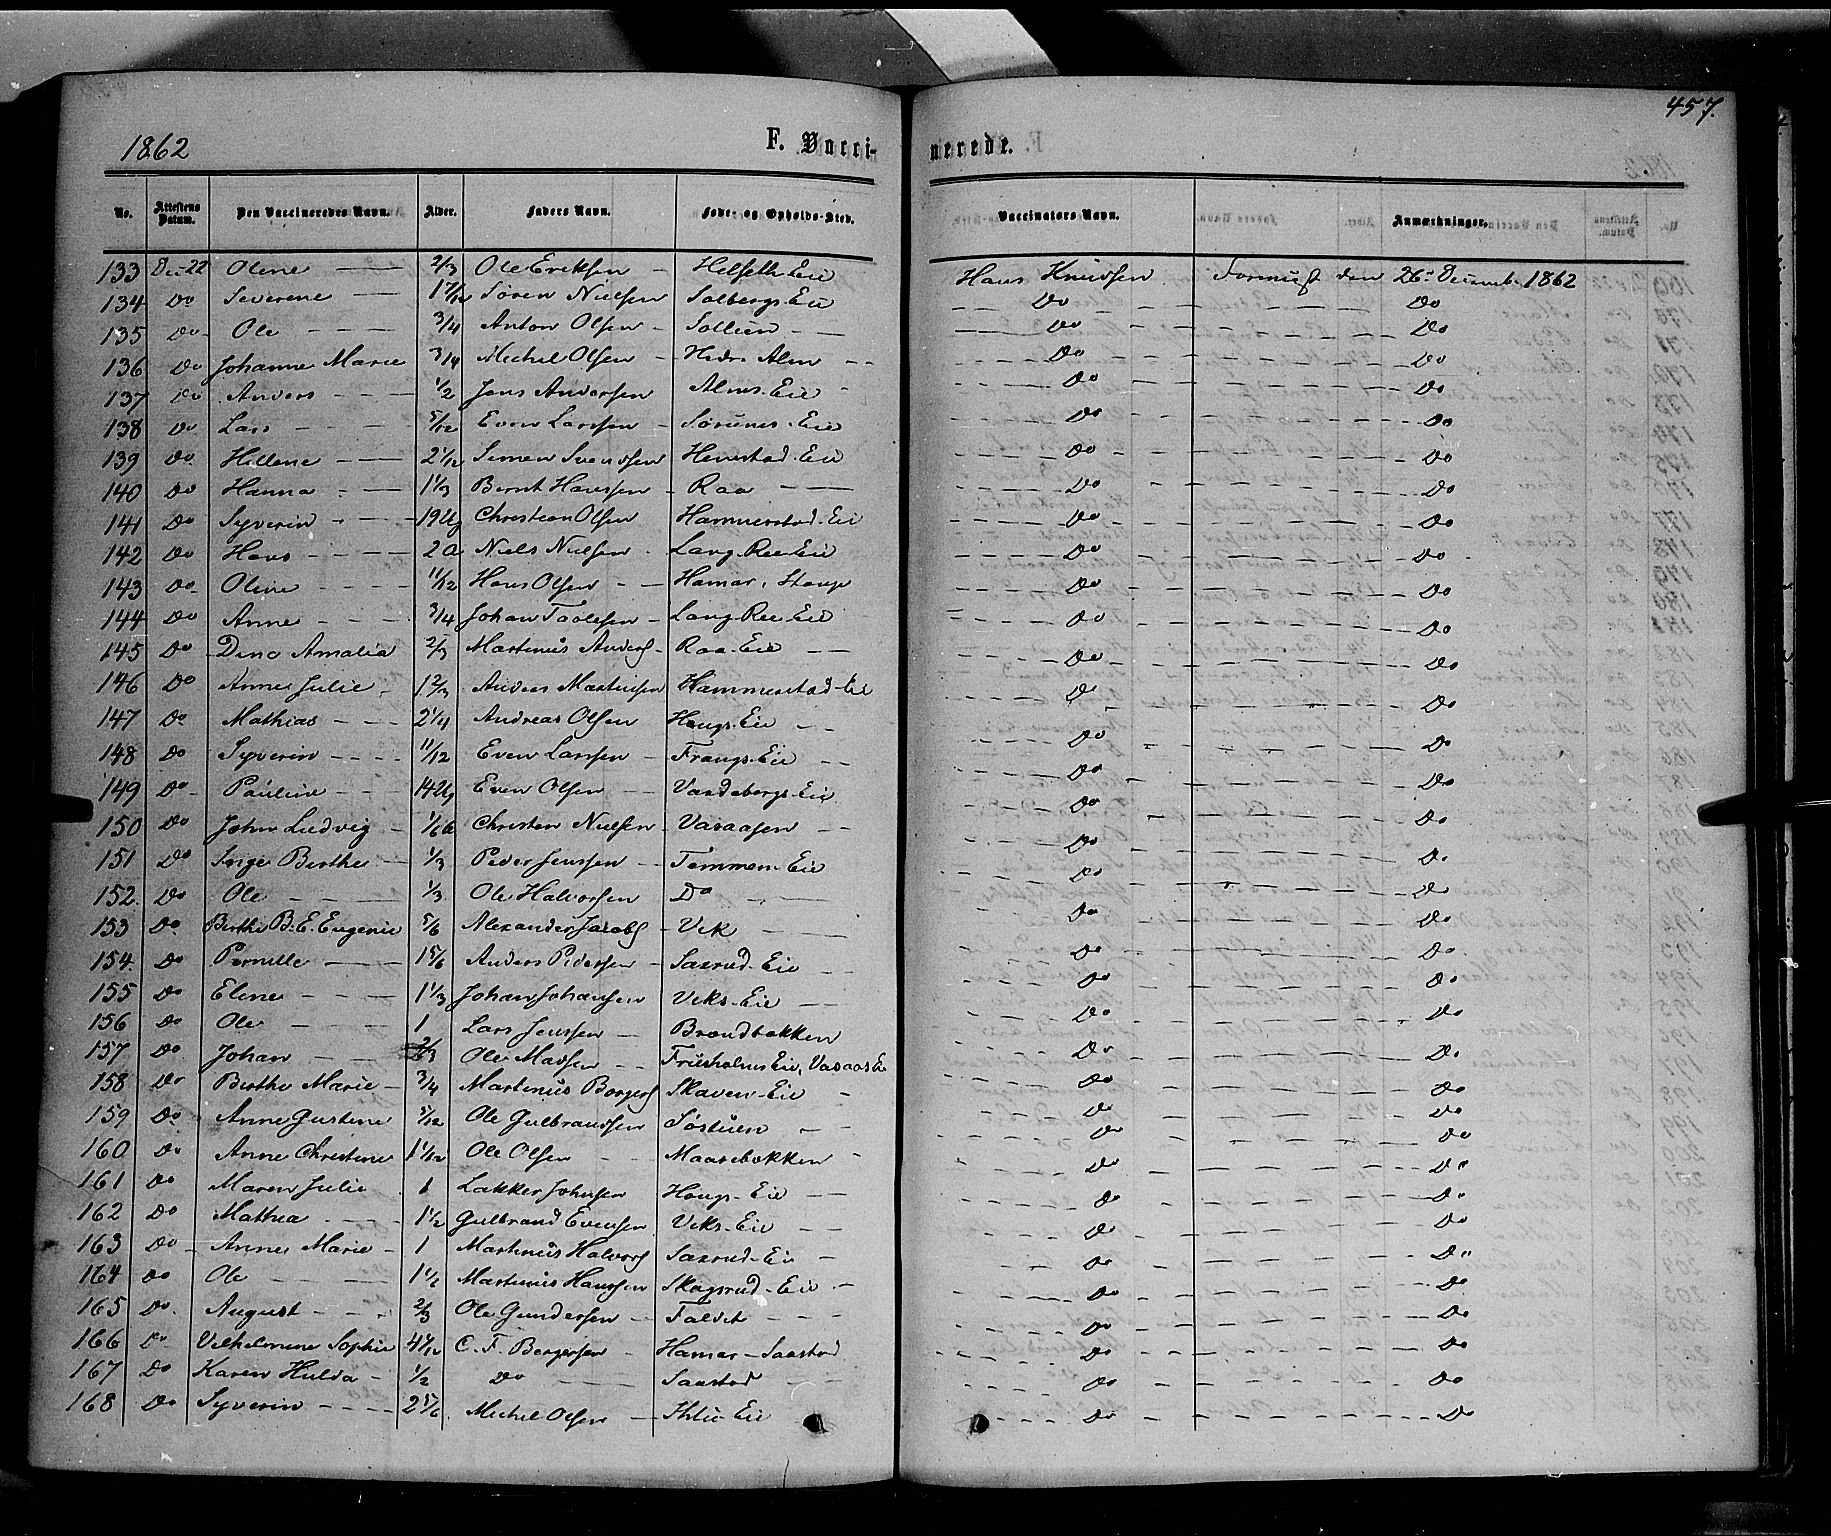 457.
1862 F. Vacci- nerede.
No. Attestens Datum. Den Vaccineredes Navn. Alder. Faders Navn. Føde- og Opholds-Sted. Vaccinators Navn. Anmærkninger.
133 Dec 22 Oline 2/3 Ole Eriksen Helseth Eie Hans Knudsen den 26 Decemb. 1862
134 Do Severene 1 7/12 Søren Nielsen Solbergs Eie Do Do
135 Do Ole 3/4 Anton Olsen Sollien Do Do
136 Do Johanne Marie 3/4 Michel Olsen Alm Do Do
137 Do Anders 1/2 Jens Andersen Alms Eie Do Do
138 Do Lars 5/12 Even Larssen Eie Do Do
139 Do Hellene 2 1/12 Simen Svendsen Eie Do Do
140 Do Hanna 1 1/3 Bernt Hanssen Raa Do Do
141 Do Syverin 19 Ug Christian Olsen Hammerstad Eie Do Do
142 Do Hans 2 a Niels Nielsen Lang-Ree Eie Do Do
143 Do Oline 11/12 Hans Olsen Hamar, Stange Do Do
144 Do Anne 3/4 Johan Taalesen Lang Ree Eie Do Do
145 Do Dina Amalia 2/3 Martinus Anders Raa Eie Do Do
146 Do Anne Julie 1 2/3 Anders Martinsen Hammerstad Eie Do Do
147 Do Mathias 2 1/4 Andreas Olsen Hougs Eie Do Do
148 Do Syverin 11/12 Even Larssen Frangs Eie Do Do
149 Do Pauline 14 Ug Even Olsen Vardebergs Eie Do Do
150 Do John Ludvig 1/6 a Christen Nielsen Vasaasen Do Do
151 Do Inge Berthe 1/3 Peder Jenssen Tommen Eie Do Do
152. Do Ole 1/3 Ole Halvorsen Do Do Do
153 Do Berthe B. E. Eugenie 5/6 Alexander Jacobs Vik Do Do
154. Do Pernille 1 5/6 Anders Pedersen Saxrud Eie Do Do
155 Do Eline 1 1/3 Johan Johansen Veks Eie Do Do
156 Do Ole 1 Lars Jenssen Brændbakken Do Do
157 Do Johan 2/3 Ole Madsen Friisholms Eie, Vasaas Eie Do Do
158 Do Berthe Marie 3/4 Martinus Borgers Skaven Eie Do Do
159 Do Anne Gustine 5/12 Ole Gulbrandsen Søstuen Do Do
160 Do Anne Christine 1 1/12 Ole Olsen Maasebakken Do Do
161 Do Maren Julie 1 Lakker Johnsen Hougs Eie Do Do
162 Do Mathea 1 1/2 Gulbrand Evensen Veks Eie Do Do
163 Do Anne Marie 1 Martinus Halvors Saxrud Eie Do Do
164 Do Ole 1 1/2 Martinus Hanssen Skogsrud Eie Do Do
165 Do August 2/3 Ole Gundersen Do Do
166 Do Vilhelmine Sophie 4 1/12 C. F. Bergersen Hamar Saastad Do Do
167 Do Karen Hulda 1/2 Do Saastad Do Do
168 Do Syverin 2 5/6 Michel Olsen Eie Do Do